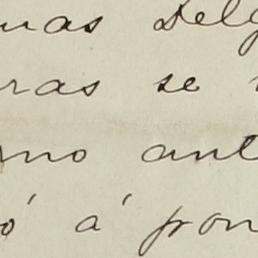 mas Delg
ras se
rno ant
ó á pron